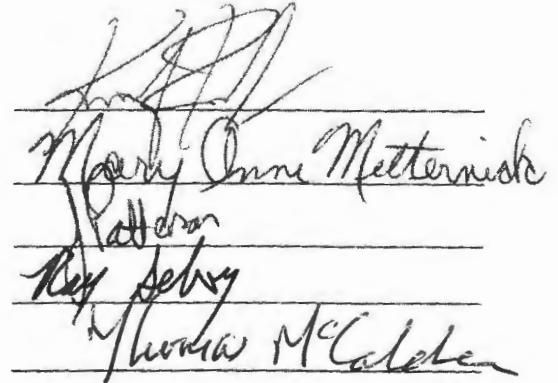 Mary Anne Metternick
Patterson
Ray Selvy
Thomas McCalden